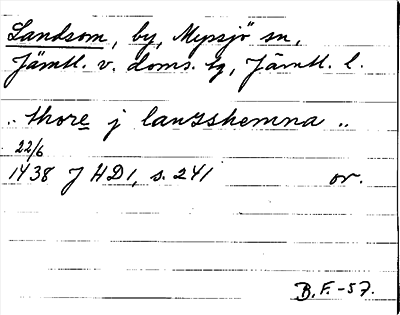 Landsom, by, Myssjö sn,
Jämtl. v. doms. tg, Jämtl. l.
.. thore j lanzshemna ..
22/6
1438 J HD1, s. 241 or.
B.F.-57.